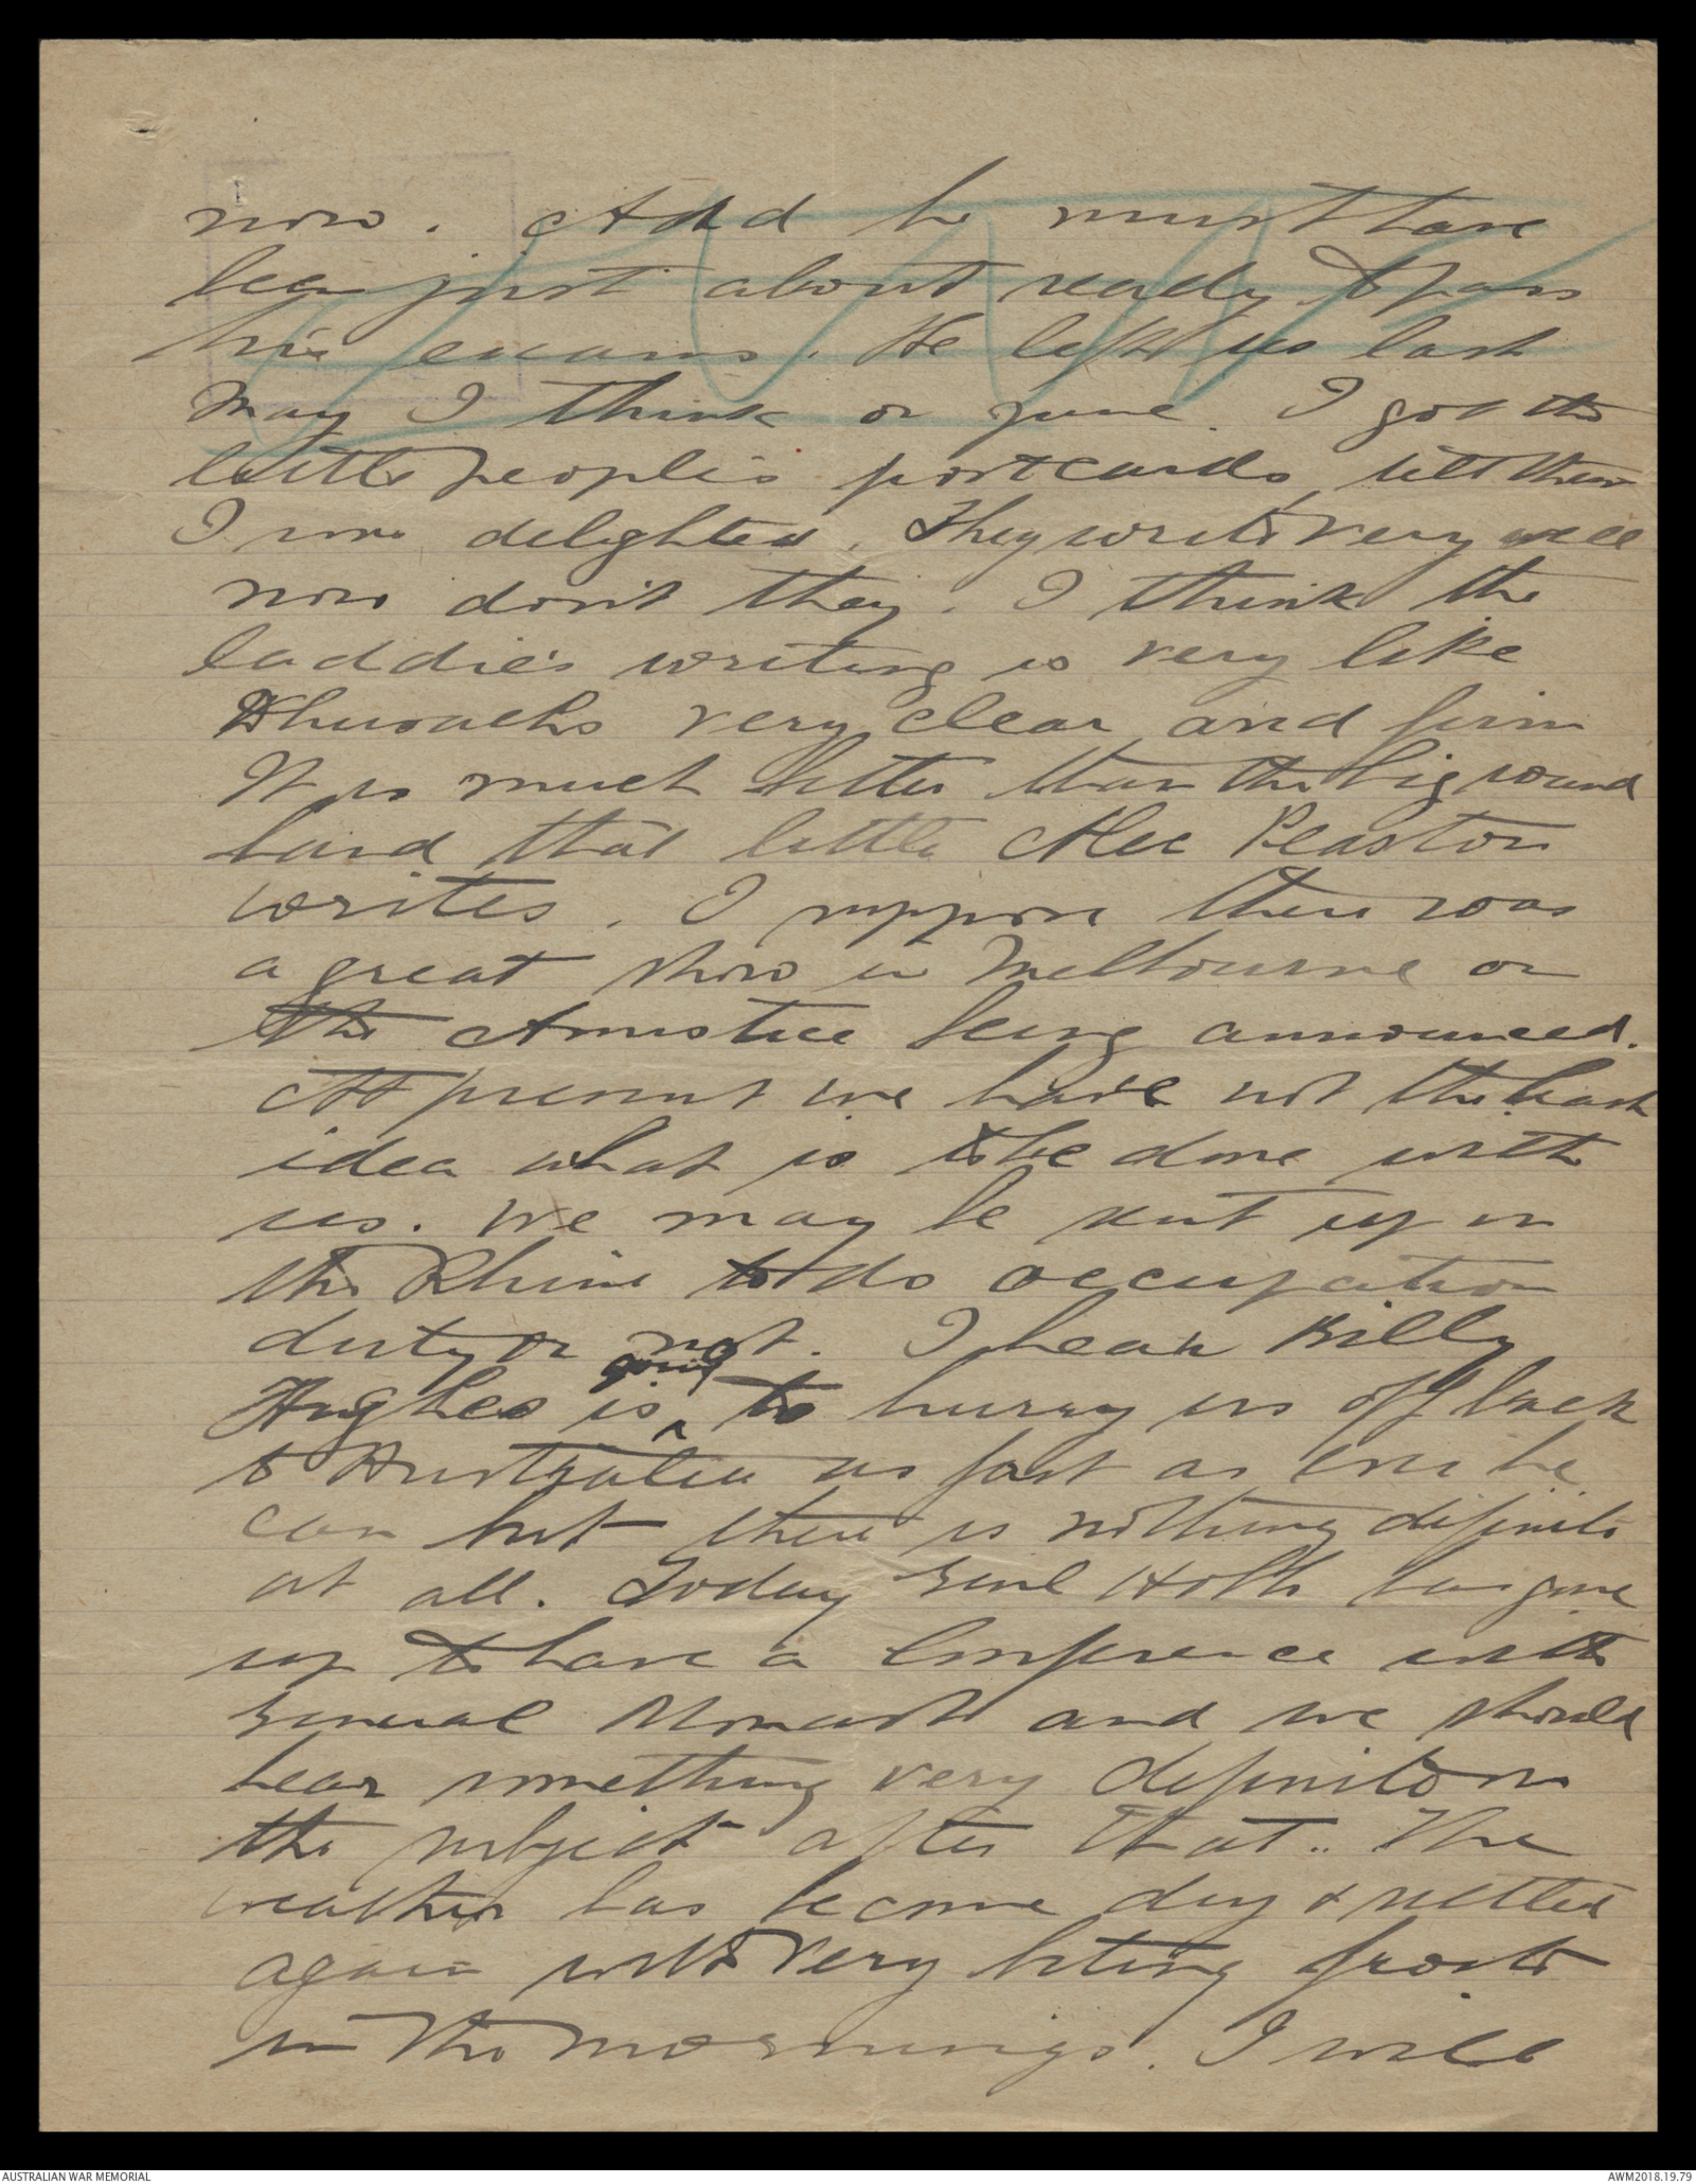 now. And he must have
been just about ready to pass
his exams. He left us last
May I think or June. I got the
little people's postcards, tell them
I was delighted. They write very well
now don't they. I think the
laddie's writing is very like
very clear and firm
It is much better than the big round
hand that little Alec Peaston
writes. I suppose there was
a great show in Melbourne on
the Armistice being announced.
At present we have not the least
idea what is to be done with
us. We may be sent up on
the Rhine to do occupation
duty or not. I hear Billy
Hughes is going to hurry us off back
to Australia as fast as ever he
can but there is nothing definite
at all. Today Genl Hobbs has gone
up to have a Conference with
General Monash and we should
hear something very definite on
the subject after that.. The
weather has become dry & settled
again with very biting frosts
in the mornings. I will
AUSTRALIAN WAR MEMORIAL
AWM2018.19.79